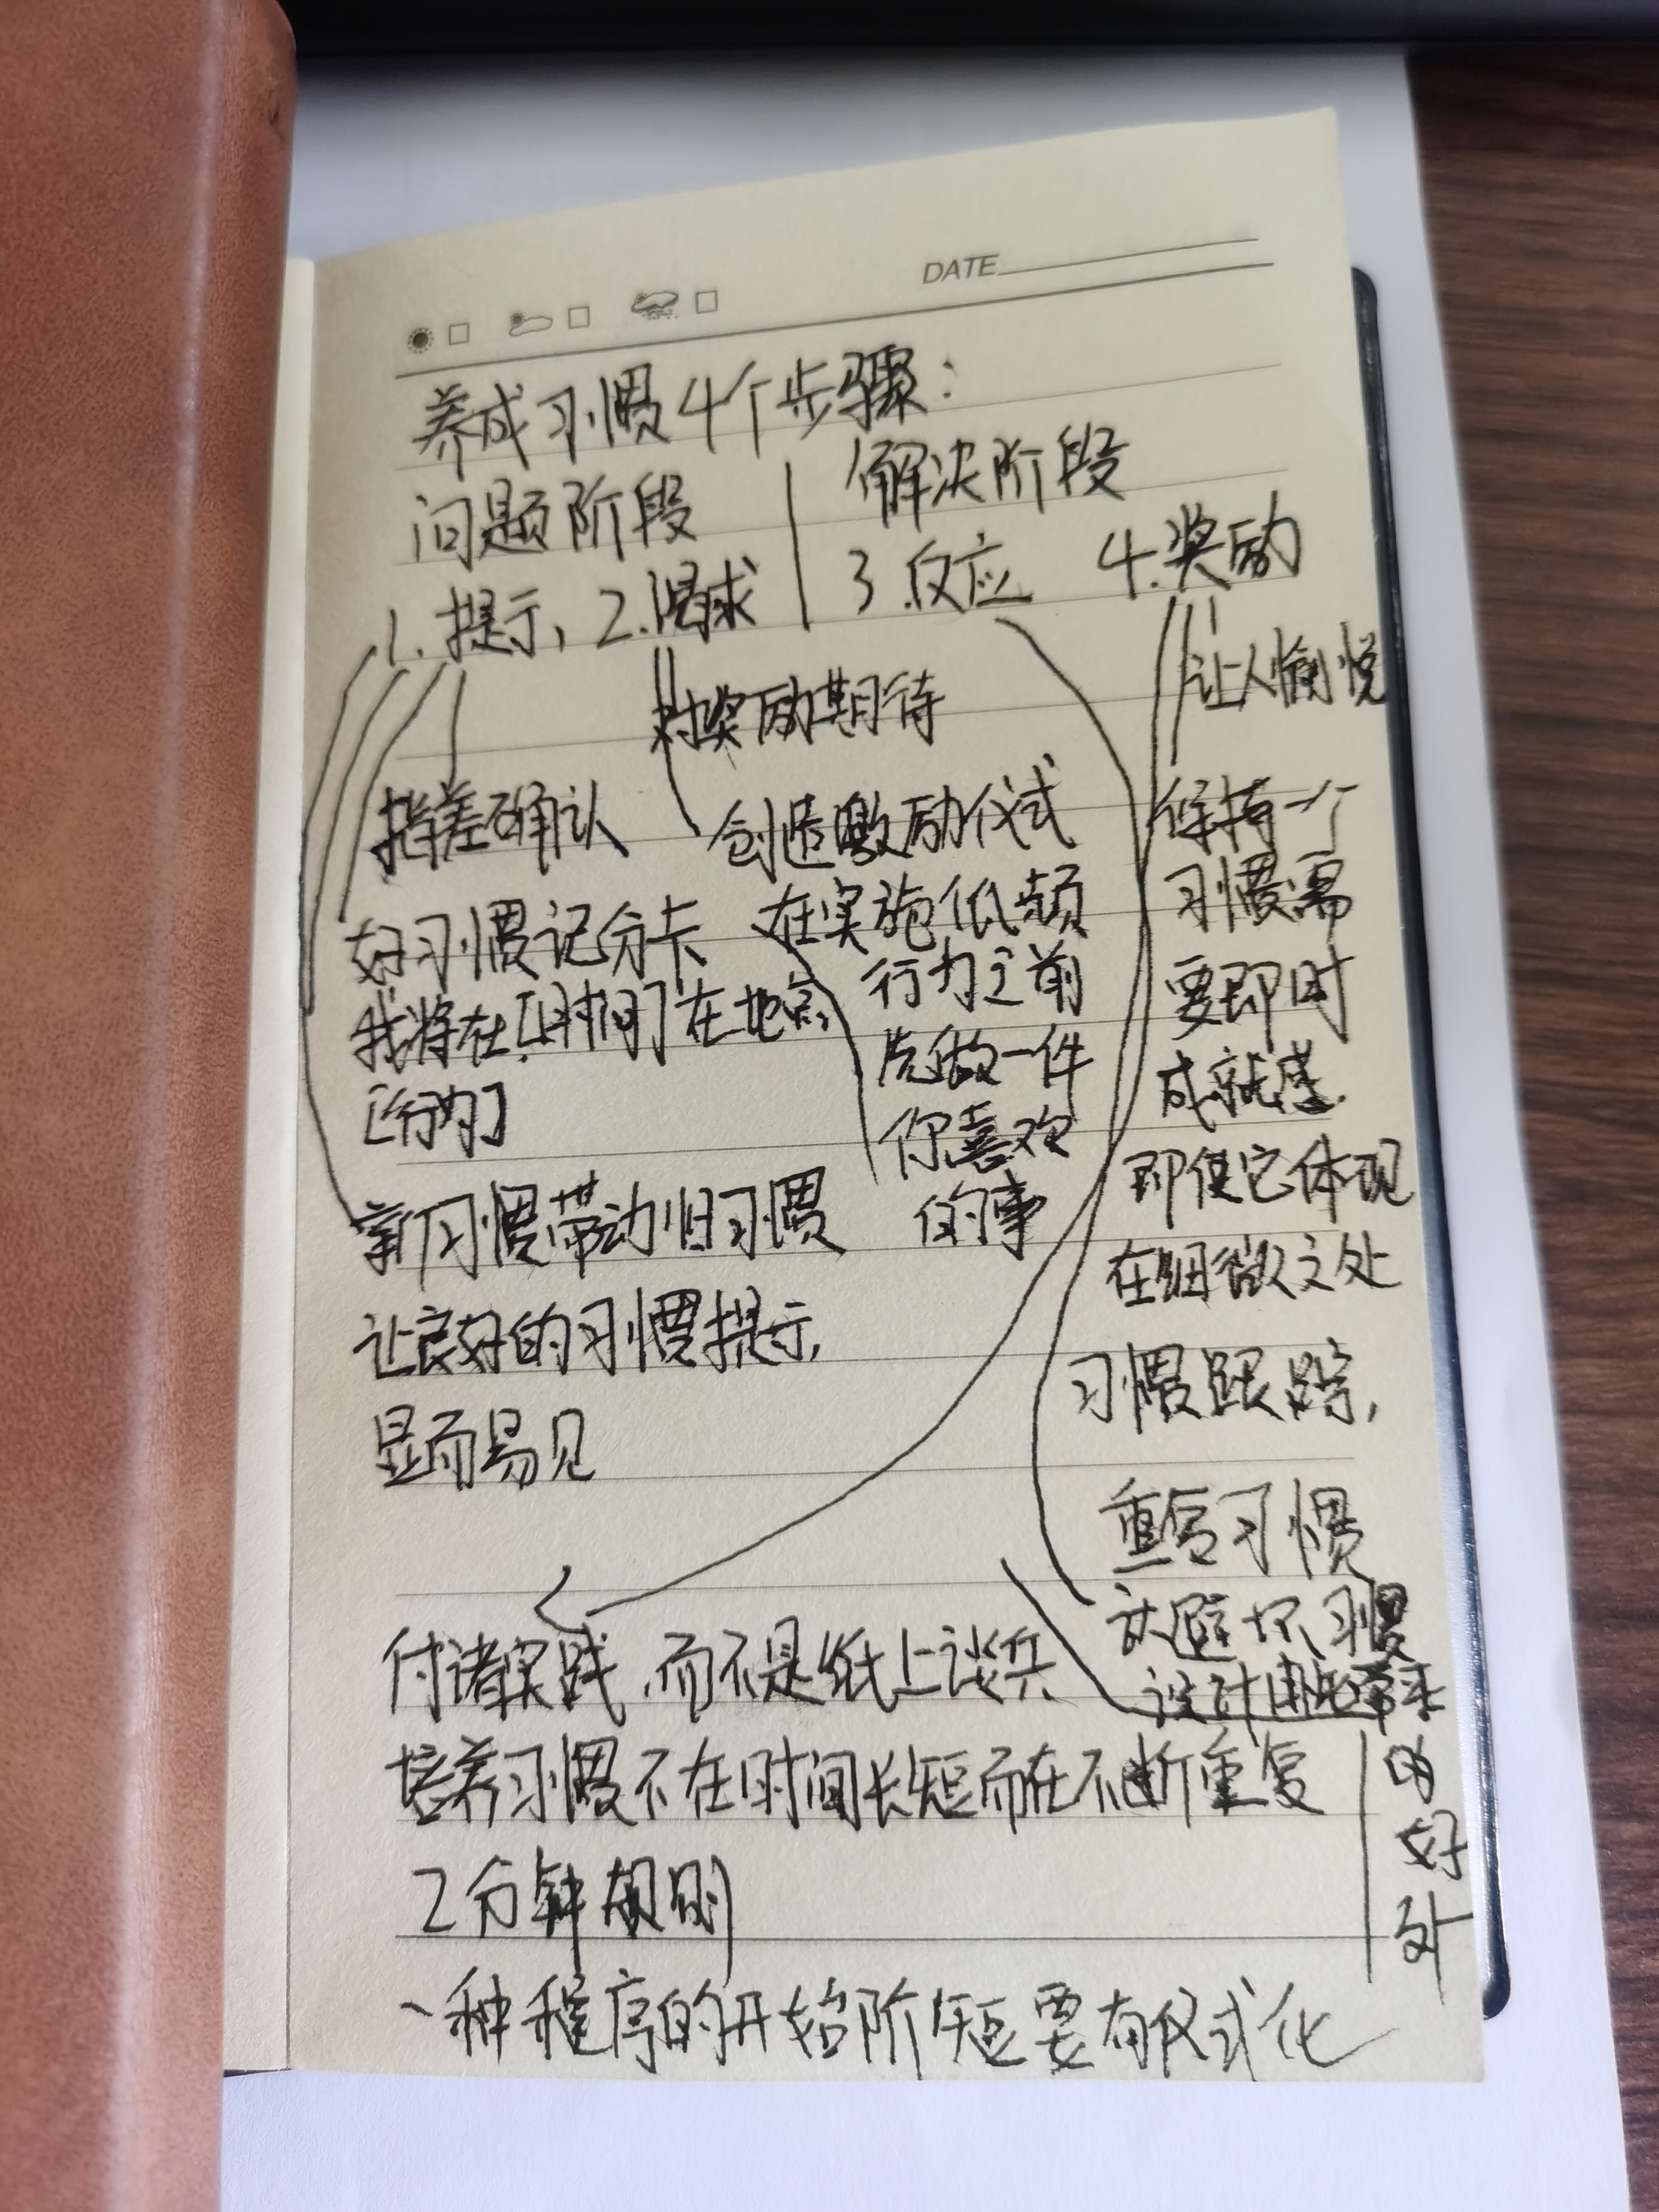 DATE
养成习惯4个步骤：
问题阶段
解决阶段
1. 提示、2. 渴求
3. 反应 4. 奖励
对奖励期待
让人愉悦
指差确认
创造激励仪式
在实施低频
行为之前
先做一件
你喜欢
的事
好习惯记分卡
我将在[时间]在地点
[行为]
新习惯带动旧习惯
让良好的习惯提示,
显而易见
保持一个
习惯需
要即时
成就感.
即使它体现
在细微之处
习惯跟踪,
重复习惯
坏习惯
设计由此带来
的
好
处
付诸实践、而不是纸上谈兵
培养习惯不在时间长短而在不断重复
2分钟规则
一种程序的开始阶段要有仪式化